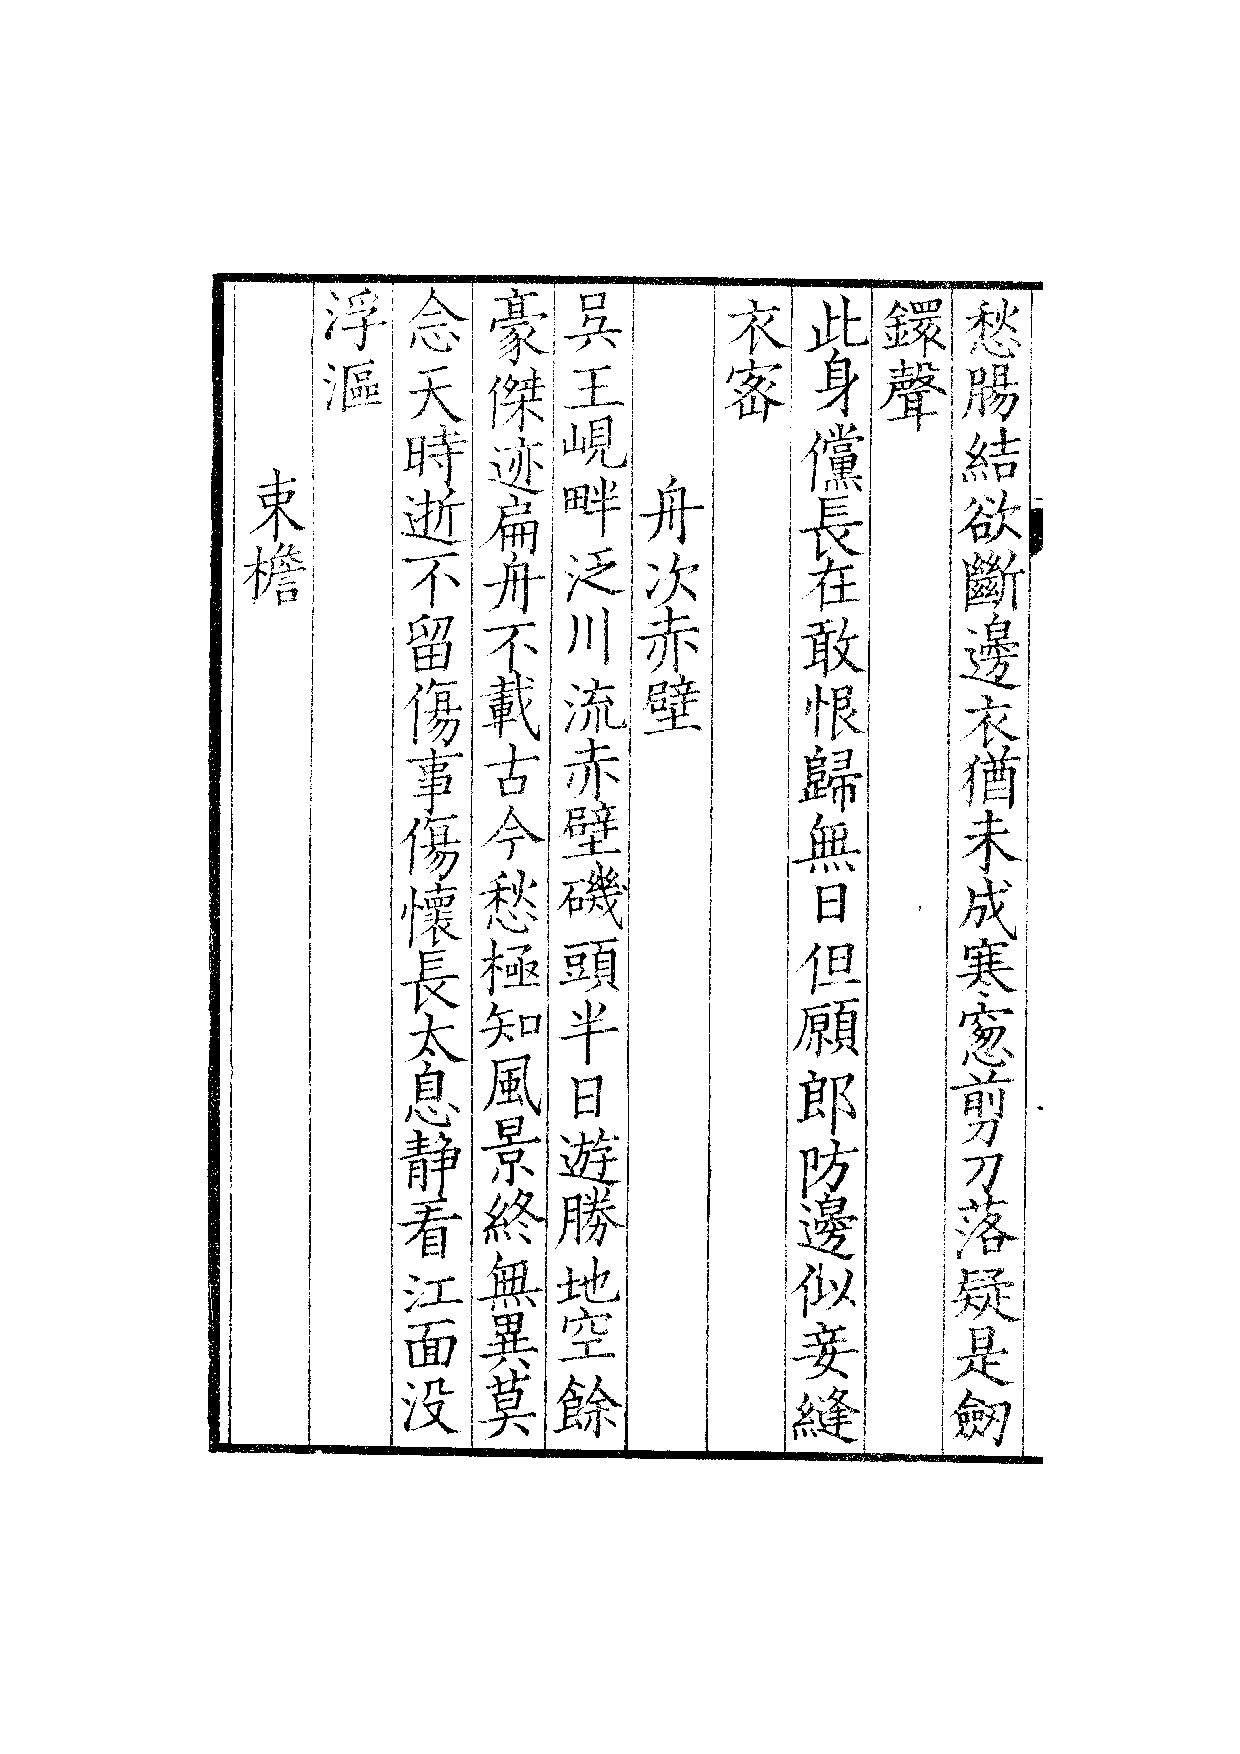 愁腸結欲斷邊衣猶未成寒窻剪刀落疑是劒
鐶聲
此身儻長在敢恨歸無日但願郎防邊似妾縫
衣宻
舟次赤壁
吳王峴畔泛川流赤壁磯頭半日遊勝地空餘
豪傑迹扁舟不載古今愁極知風景終無異莫
念天時逝不留傷事傷懷長太息静看江面没
浮漚
束檐